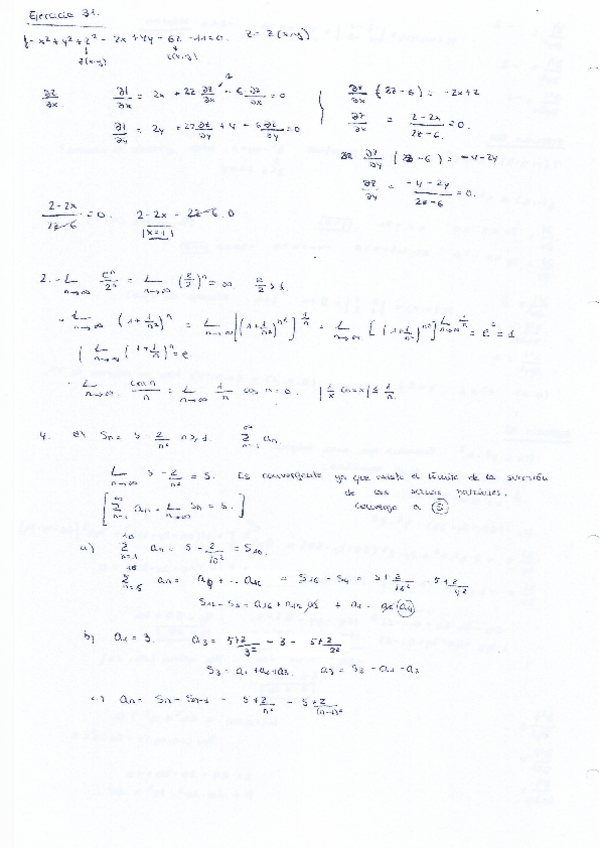 Ejercicio 31.
f = x² + y² + z² - 2x + 4y - 6z - 11 = 0. z = z(x,y)
z(x,y) z(x,y)
∂z/∂x ∂f/∂x = 2x + 2z ∂z/∂x - 6 ∂z/∂x = 0
∂f/∂y = 2y + 2z ∂z/∂y + 4 - 6 ∂z/∂y = 0
∂z/∂x (2z - 6) = -2x + 2
∂z/∂x = (2 - 2x)/(2z - 6) = 0.
∂z/∂y (2z - 6) = -4 - 2y
∂z/∂y = (-4 - 2y)/(2z - 6) = 0.
(2 - 2x)/(2z - 6) = 0. 2 - 2x = 2z - 6 . 0
x = 1
2. - L n→∞ eⁿ/2ⁿ = L n→∞ (e/2)ⁿ = ∞. e/2 > 1.
L n→∞ (1 + 1/n²)ⁿ = L n→∞ [(1 + 1/n²)^n²]^1/n = L n→∞ [(1 + 1/n²)^n²]^L n→∞ 1/n = e⁰ = 1
L n→∞ (1 + 1/n)ⁿ = e
L n→∞ cos n/n = L n→∞ 1/n cos n = 0. |1/x cos x| ≤ 1/n.
4. Sn = 5 - 2/n² n ≥ 1. ∞ Σ n=1 an.
L n→∞ 5 - 2/n² = 5. Es convergente ya que existe el límite de la sucesión
de las sumas parciales.
[∞ Σ n=1 an = L n→∞ Sn = 5.] Converge a 5
a) 10 Σ n=1 an = 5 - 2/10² = S10.
16 Σ n=5 an = + ... a16 = S16 - S4 = 5 + 2/16² - 5 + 2/4²
b) a1 = 3. a3 = 5 + 2/3² - 3 - 5 + 2/2²
S3 = a1 + a2 + a3. a3 = S3 - a1 - a2
c) an = Sn - Sn-1 = 5 + 2/n² - 5 + 2/(n-1)²